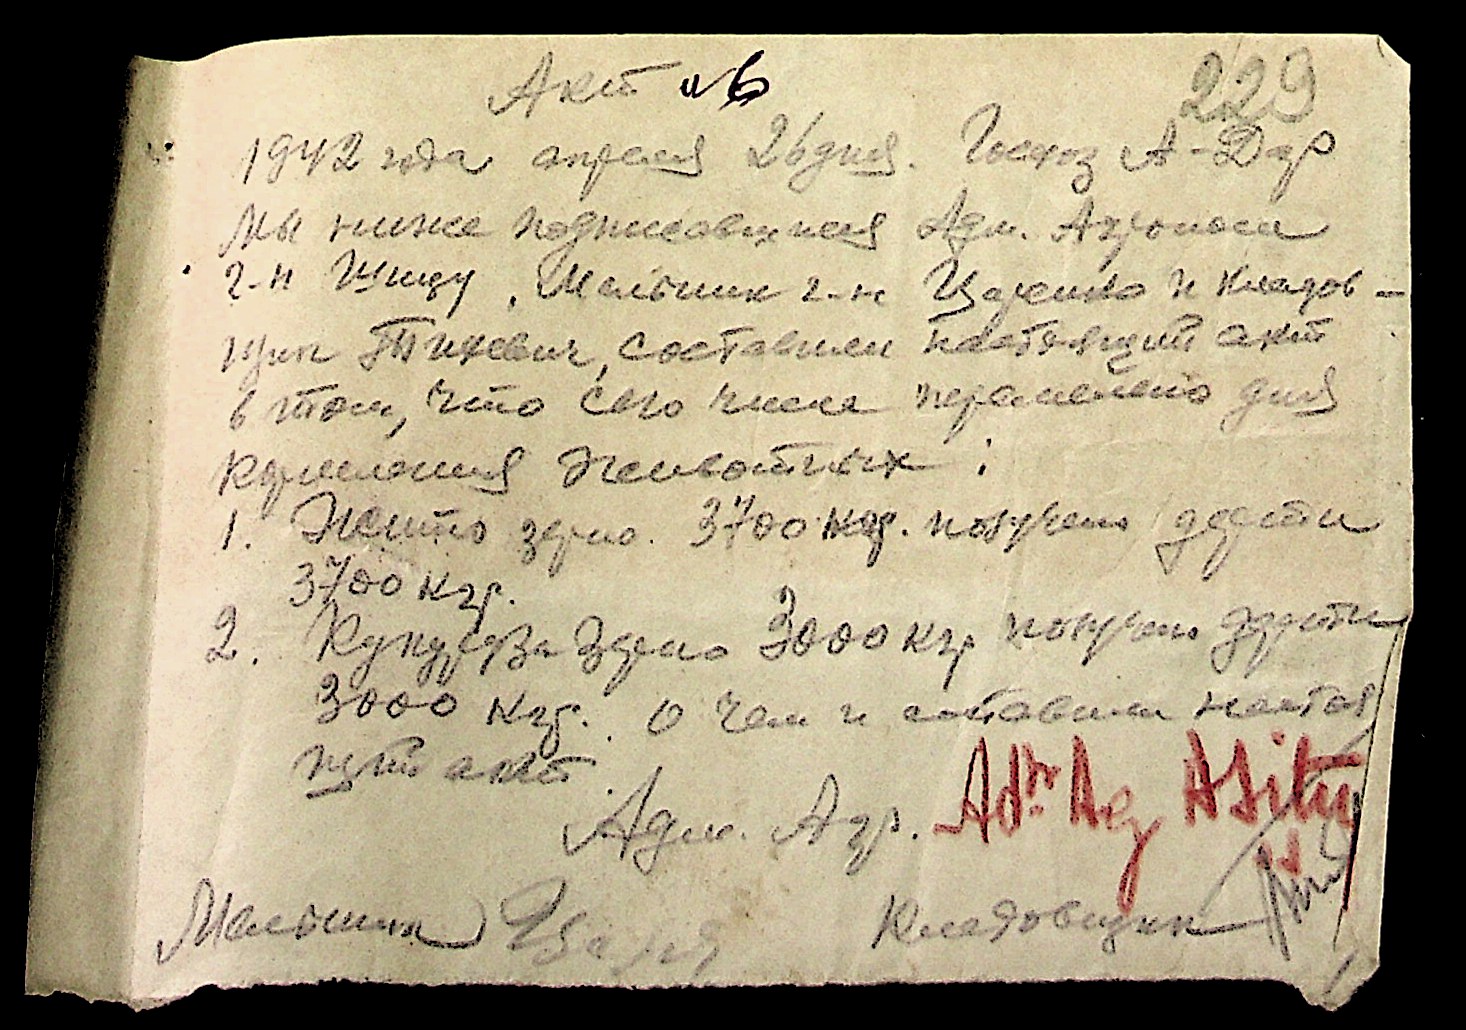 Акт № 6
229
1942 года апреля 26 дня. Госхоз А-Дар
Мы ниже подписавшиеся Адм. Агронос
г-н Шицу, Мельник г-н Царенко и Кладов-
щик Тихевич, составили настоящий акт
в том, что сего числа перемелено для
кормления животных:
1. Жито зерно. 3700 кгр. получено дерти
3700 кгр.
2. Кукуруза зерно 3000 кгр получено дерти
3000 кгр. о чем и составили настоя
щий акт
Адм. Агр. Adr Ag
Мельник Царе
Кладовщик